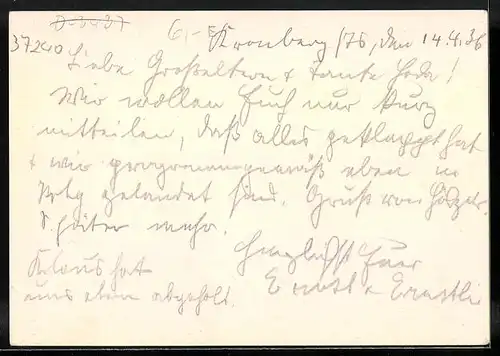 37240
6,-
Kronberg /TS, den 14.4.36
Liebe Großeltern & Tante
Wir wollen Euch nur kurz
mitteilen, daß alles geklappt hat
& wir programmgemäß eben in
gelandet sind. Gruß von
Später mehr.
Herzlichst Euer
Klaus hat
uns eben abgeholt.